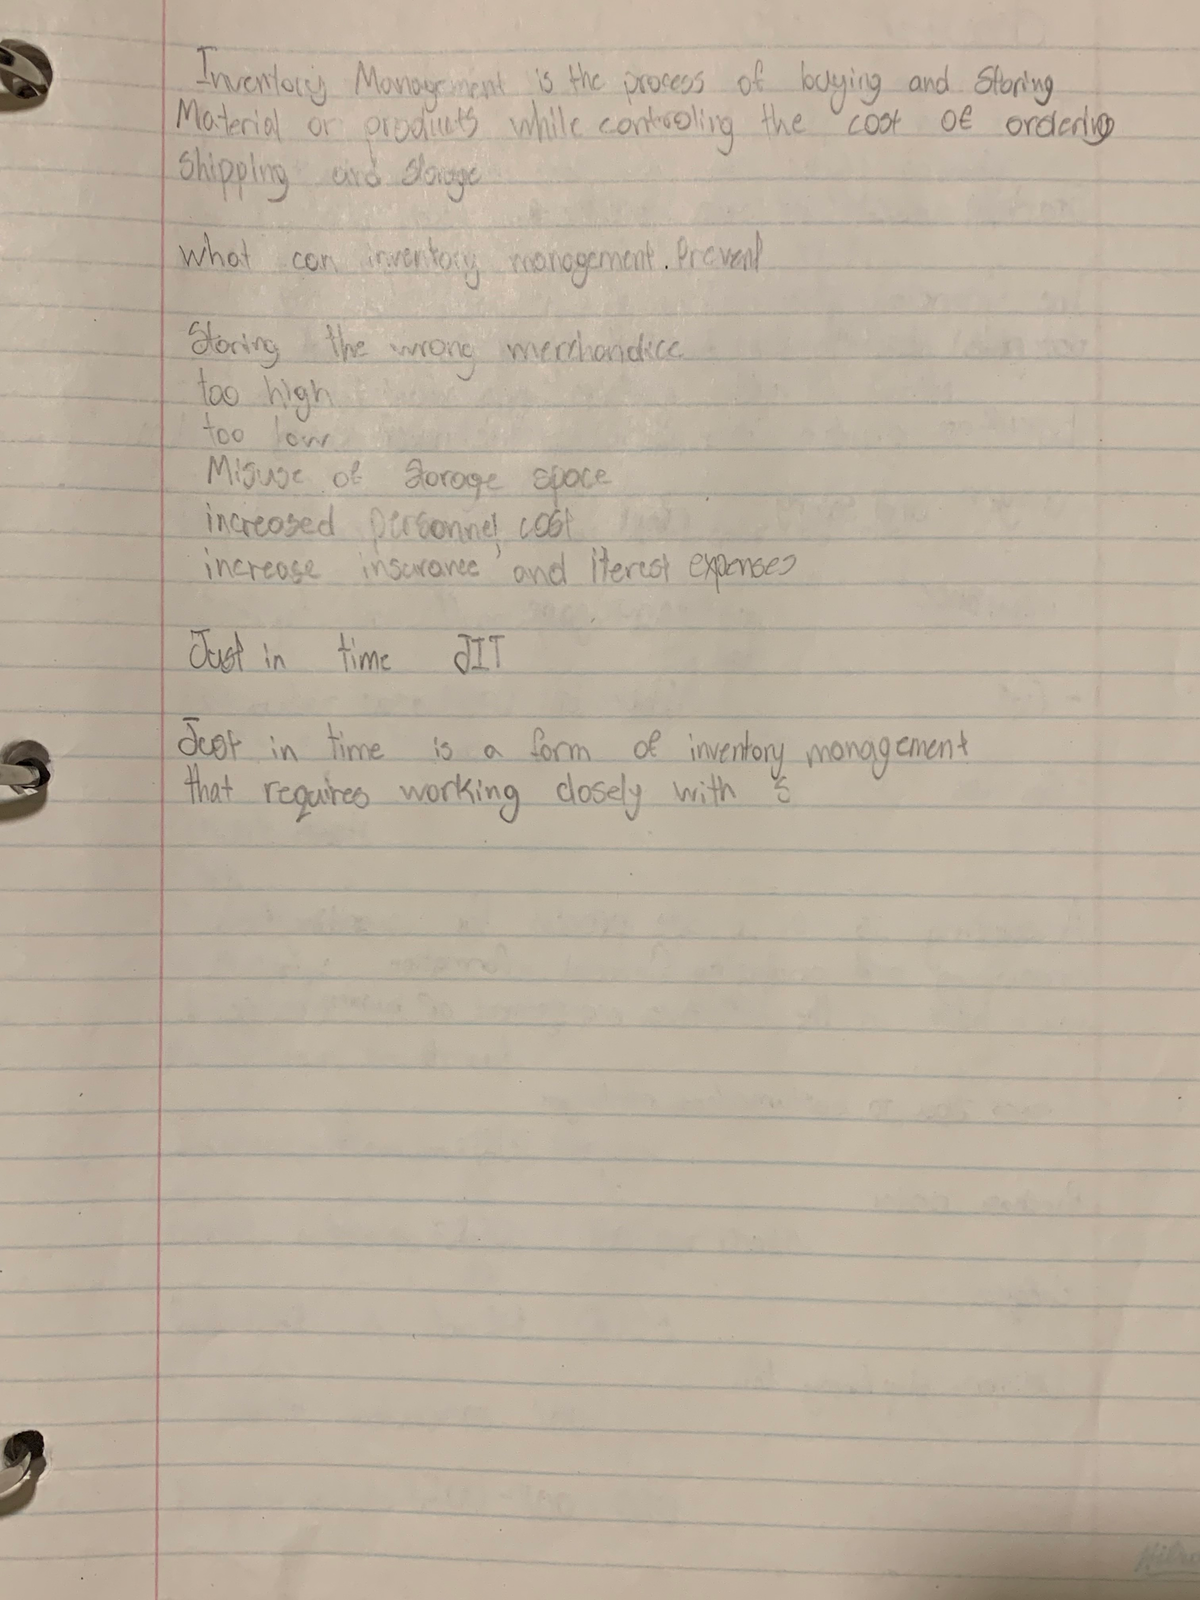 Inventory Management is the process of buying and Storing
Material or products while controling the cost of ordering
Shipping and Storage
What can inventory management. Prevent
Storing the wrong merchandice
too high
too low
Misuse of Storage space
increased personnel cost
increase insurance and iterest expenses
Just in time JIT
Just in time is a form of inventory management
that requires working closely with s